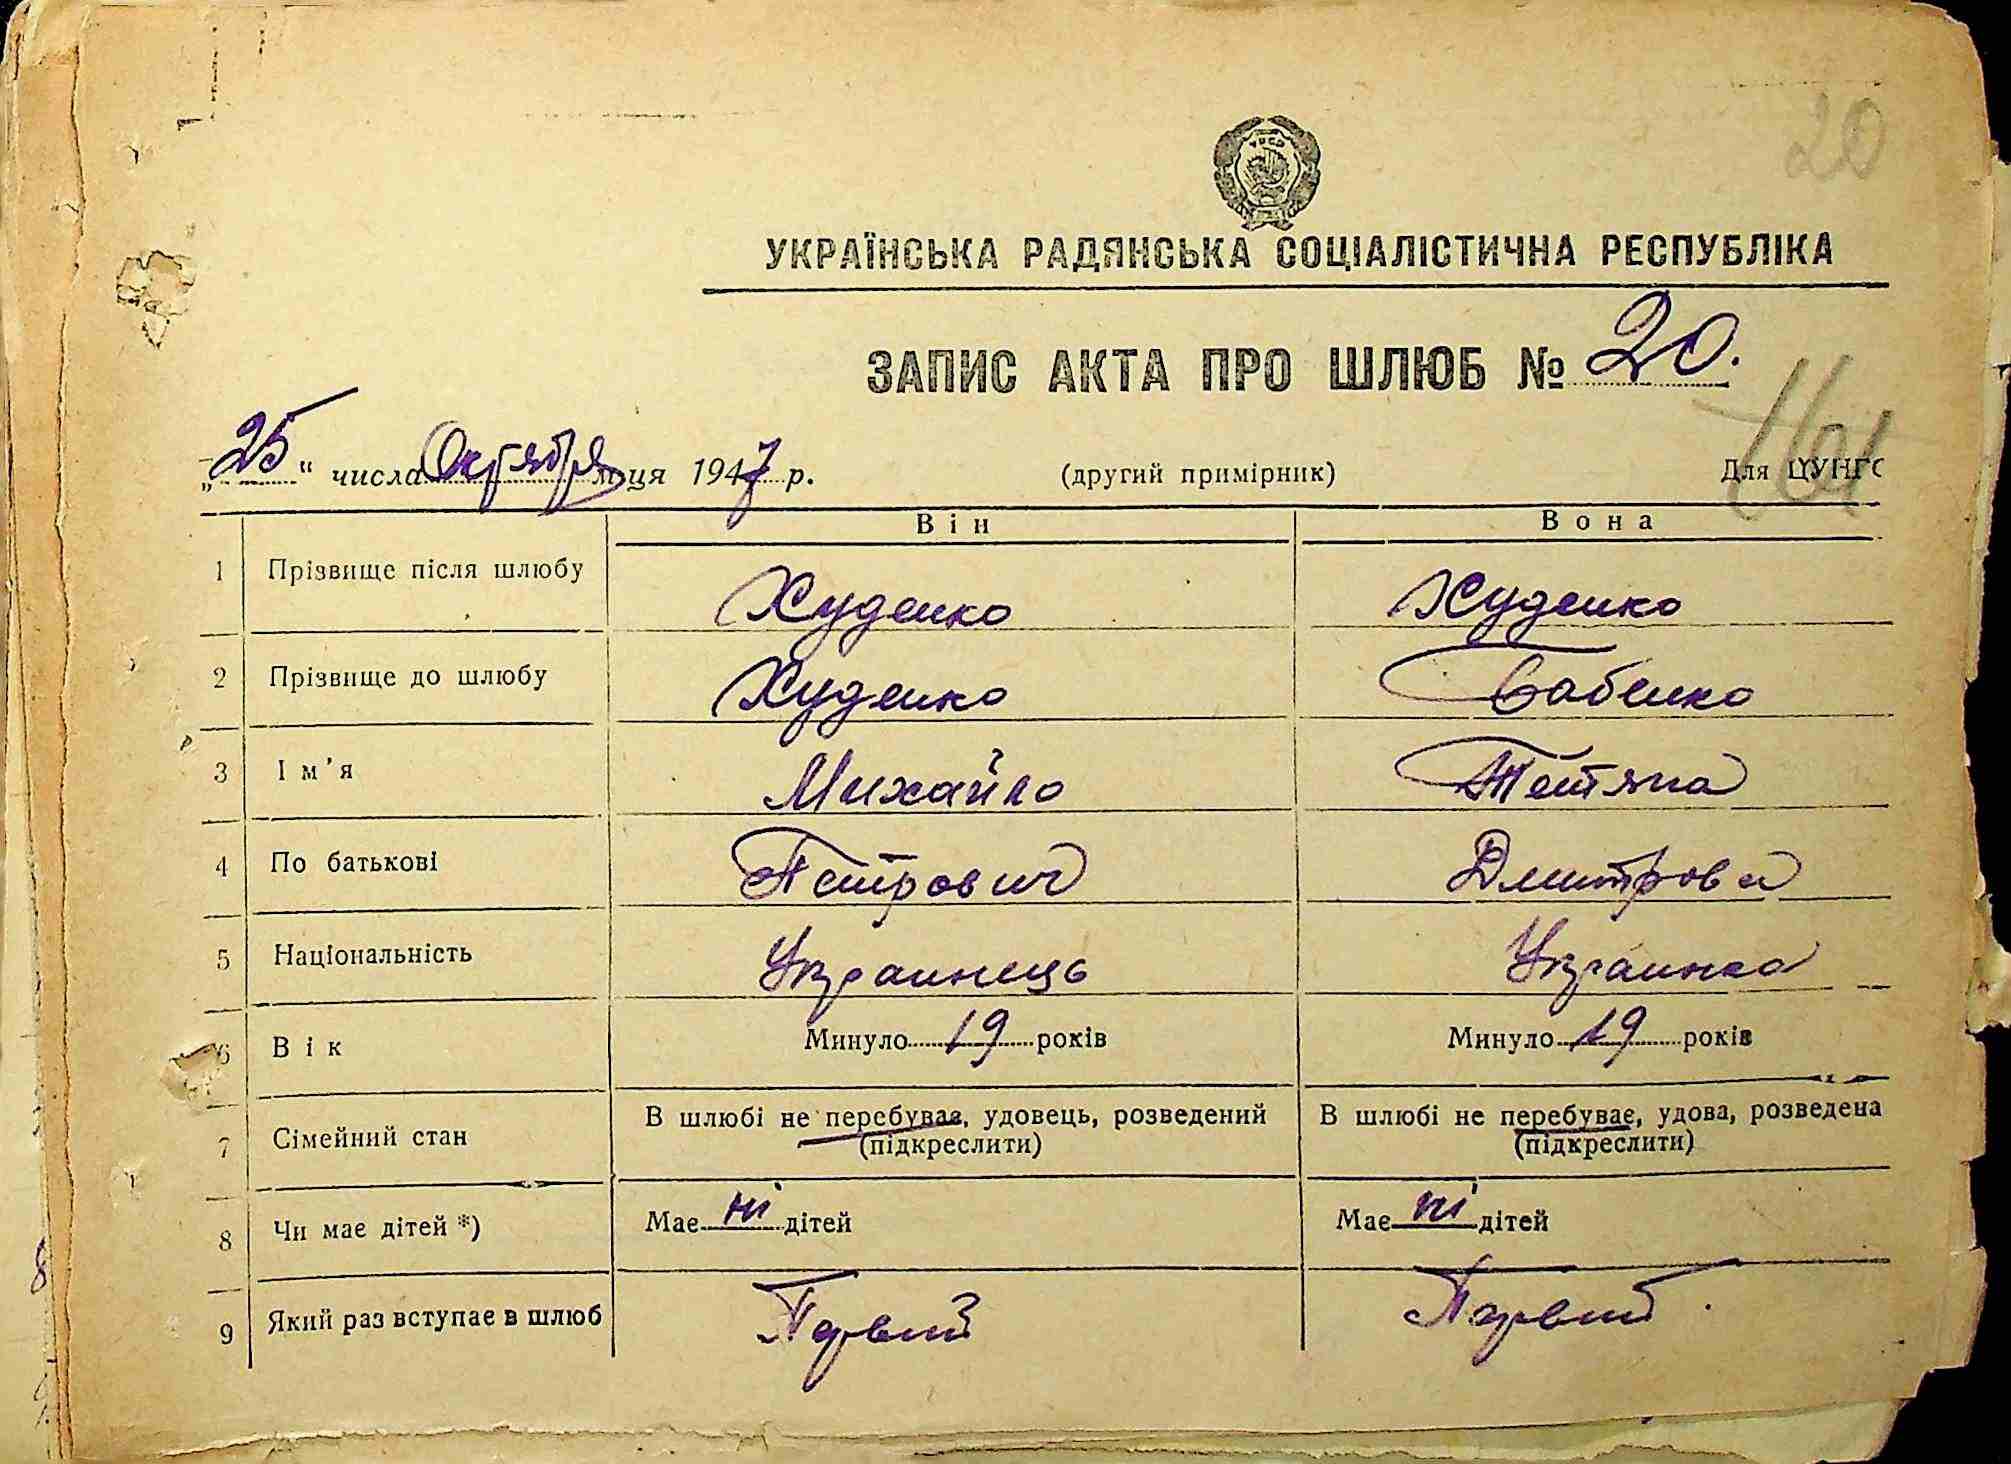 20
УРСР
УКРАЇНСЬКА РАДЯНСЬКА СОЦІАЛІСТИЧНА РЕСПУБЛІКА
ЗАПИС АКТА ПРО ШЛЮБ № 20.
161
„25“ числа Октября м-ця 1947 р. (другий примірник) Для ЦУНГС
Він Вона
1 Прізвище після шлюбу Худенко Худенко
2 Прізвище до шлюбу Худенко Бабенко
3 Ім’я Михайло Тетяна
4 По батькові Петрович Дмитрова
5 Національність Украинець Украинка
6 Вік Минуло 19 років Минуло 19 років
7 Сімейний стан В шлюбі не перебуває, удовець, розведений (підкреслити) В шлюбі не перебуває, удова, розведена (підкреслити)
8 Чи має дітей *) Має ні дітей Має ні дітей
9 Який раз вступає в шлюб Первий Первий